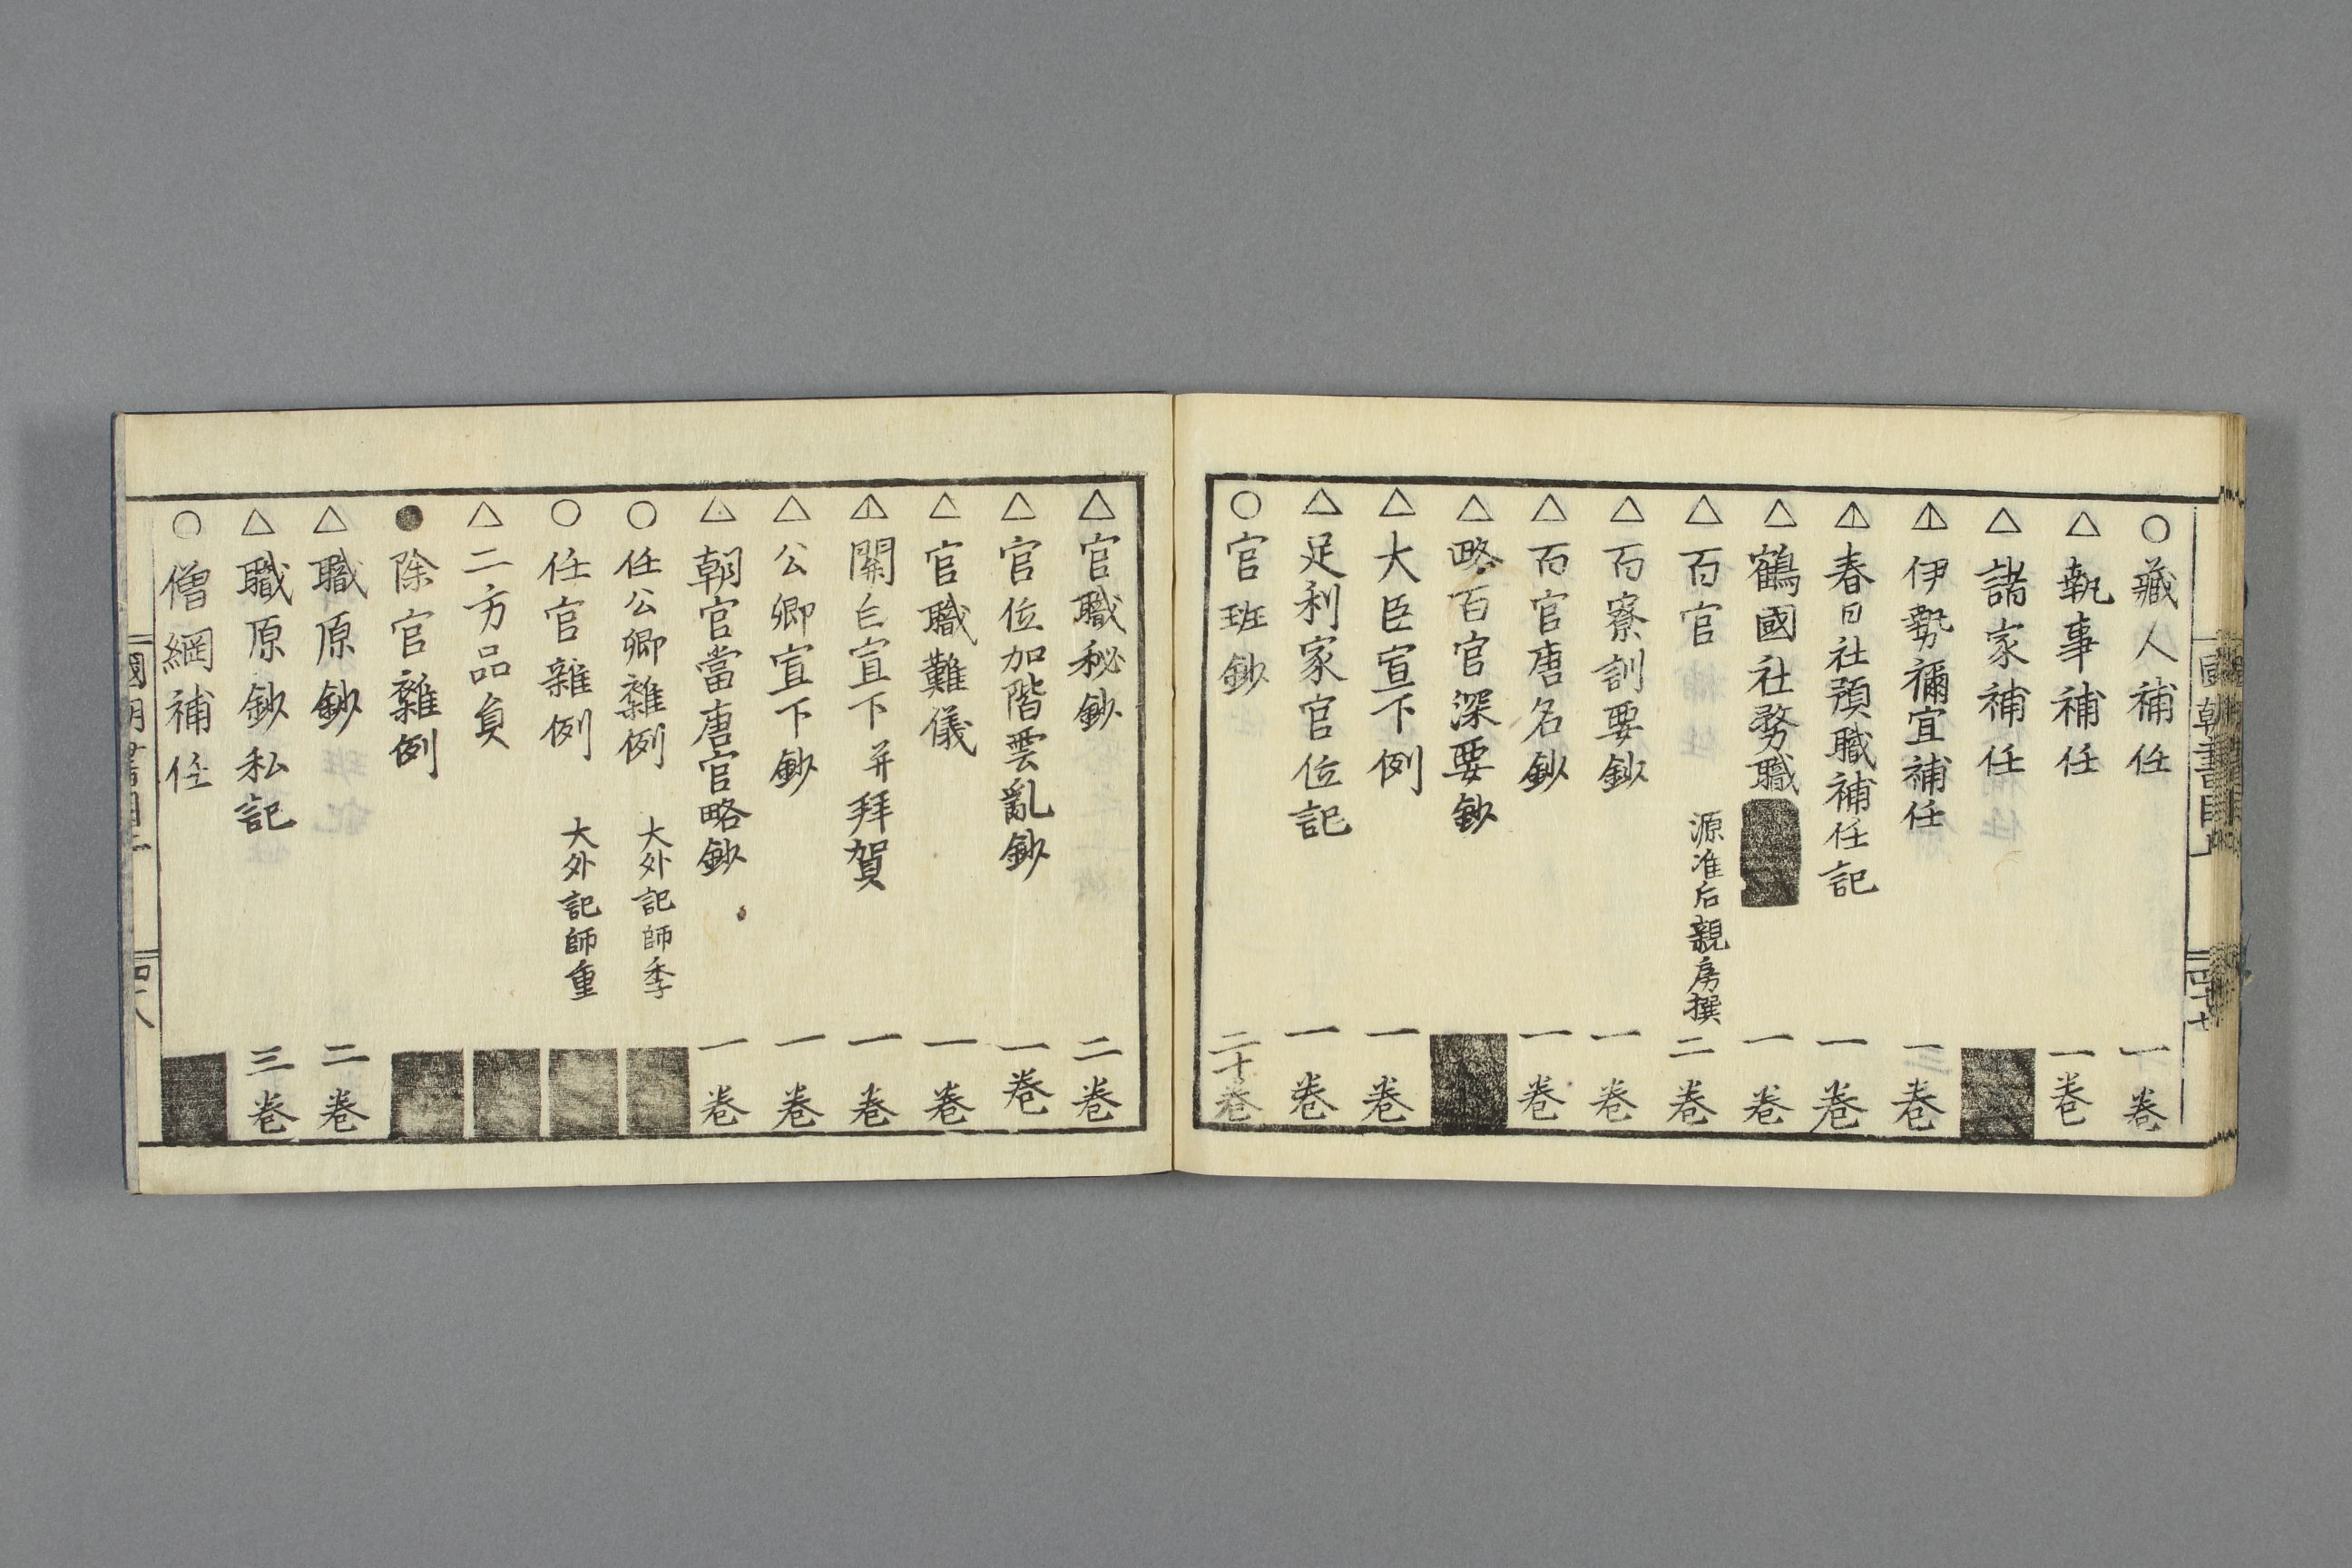 ○藏人補任 一巻
△執事補任 一巻
△諸家補任
△伊勢禰宜補任 一巻
△春日社預職補任記 一巻
△鶴國社務職 一巻
△百官 源准后親房撰 二巻
△百寮訓要鈔 一巻
△百官唐名鈔 一巻
△略百官深要鈔
△大臣宣下例 一巻
△足利家官位記 一巻
○官班鈔 二十巻
△官職秘鈔 二巻
△官位加階雲亂鈔 一巻
△官職難儀 一巻
△關白宣下并拜賀 一巻
△公卿宣下鈔 一巻
△朝官當唐官略鈔 一巻
○任公卿雜例 大外記師季
○任官雜例 大外記師重
△二方品員
●除官雜例
△職原鈔 二巻
△職原鈔私記 三巻
○僧綱補任